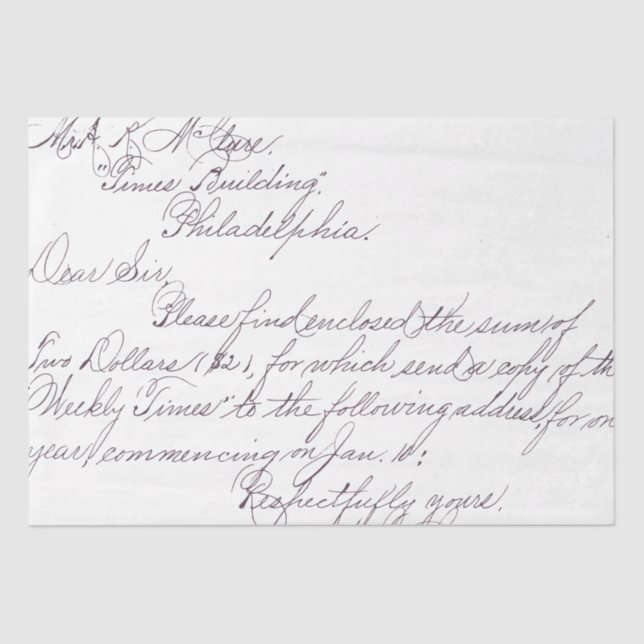 Mr. A. K. McClure.
"Times Building",
Philadelphia.
Dear Sir,
Please find enclosed the sum of
Two Dollars ($2), for which send a copy of th
Weekly "Times" to the following address, for on
year, commencing on Jan. 10:
Respectfully yours,